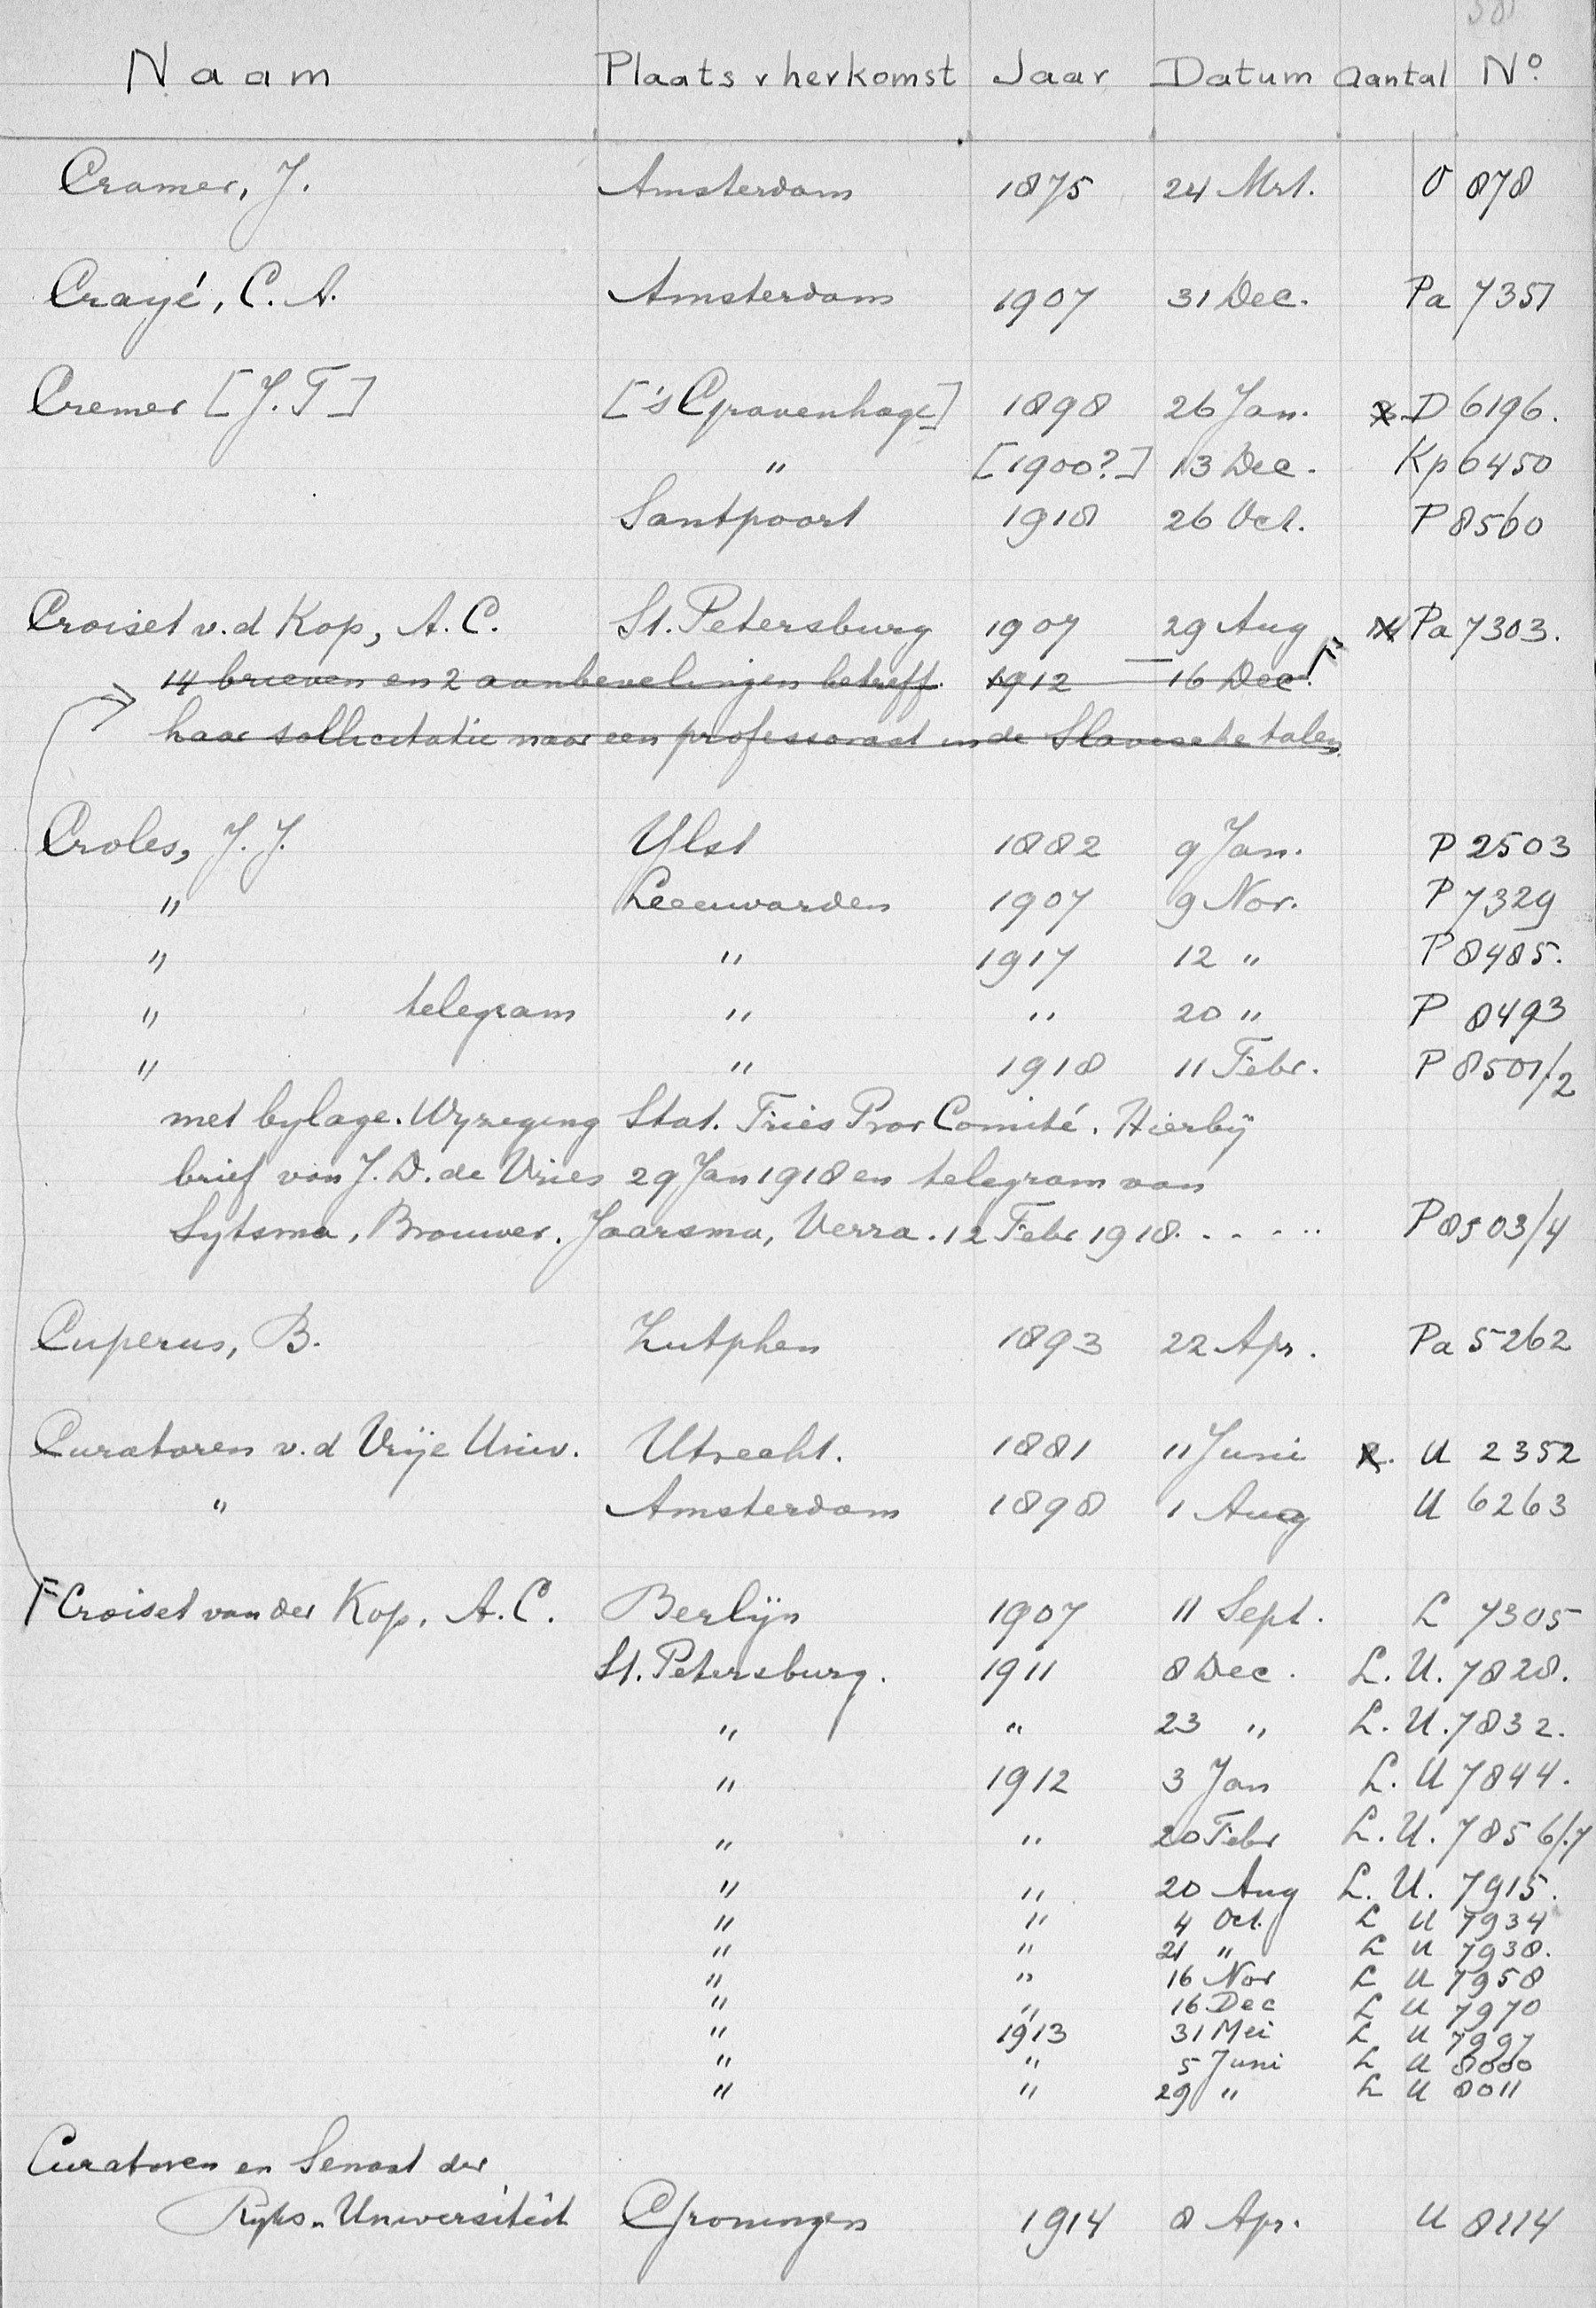 Naam Plaats v herkomst Jaar Datum Aantal No.
Cramer, J. Amsterdam 1875 24 Mrt. O 878
Crayé, C. A. Amsterdam 1907 31 Dec. Pa 7351
Cremer [J. T] ['s Gravenhage] 1898 26 Jan. D 6196.
" [1900?] 13 Dec. Kp 6450
Santpoort 1918 26 Oct. P 8560
Croiset v. d Kop, A. C. St. Petersburg 1907 29 Aug Pa 7303.
14 brieven en 2 aanbevelingen betreff. 1912 — 16 Dec.
haar sollicitatie naar een professoraat in de Slavische talen.
Croles, J. J. Ylst 1882 9 Jan. P 2503
" Leeuwarden 1907 9 Nov. P 7329
" " 1917 12 " P 8485.
" telegram " " 20 " P 8493
" " 1918 11 Febr. P 8501/2
met bylage. Wyzeging Stat. Fries Prov Comité. Hierbij
brief van J. D. de Vries 29 Jan 1918 en telegram van
Sytsma, Brouwer, Jaarsma, Verra. 12 Febr 1918. . . . . . P 8503/4
Cuperus, B. Zutphen 1893 22 Apr. Pa 5262
Curatoren v. d Vrije Univ. Utrecht. 1881 11 Juni U 2352
" Amsterdam 1898 1 Aug U 6263
Croiset van der Kop, A. C. Berlijn 1907 11 Sept. L 7305
St. Petersburg. 1911 8 Dec. L. U. 7828.
" " 23 " L. U. 7832.
" 1912 3 Jan L. U 7844.
" " 20 Febr L. U. 7856/.7
" " 20 Aug L. U. 7915.
" " 4 Oct. L U 7934
" " 21 " L U 7938.
" " 16 Nov L U 7958
" " 16 Dec L U 7970
" 1913 31 Mei L U 7997
" " 5 Juni L U 8000
" " 29 " L U 8011
Curatoren en Senaat der
Ryks-Universiteit Groningen 1914 8 Apr. U 8114